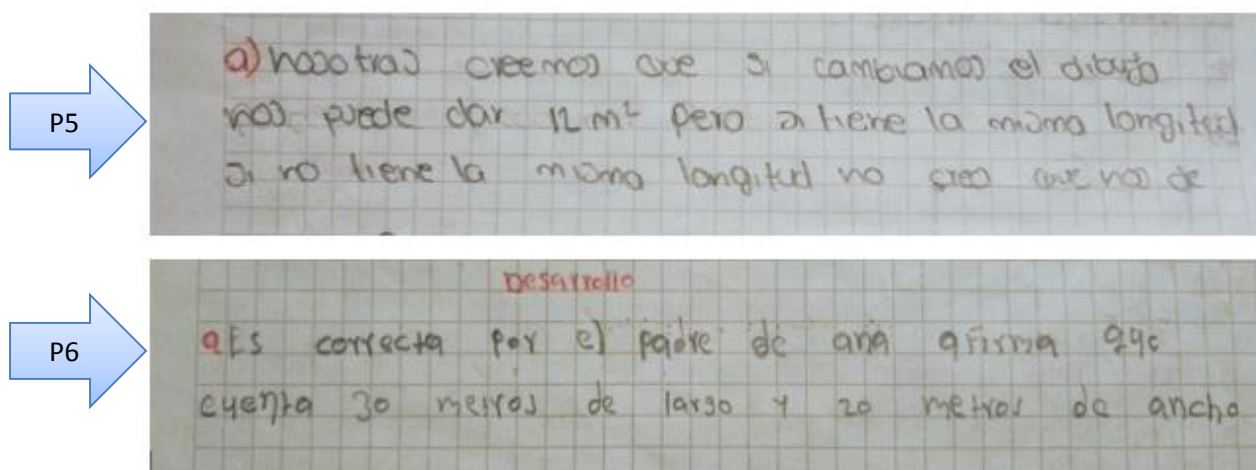 P5
a) nosotras creemos que si cambiamos el dibujo
nos puede dar 12 m² pero si tiene la misma longitud
si no tiene la misma longitud no creo que nos de
P6
Desarrollo
a Es correcta por el padre de ana afirma qqe
cuenta 30 metros de largo y 20 metros de ancho